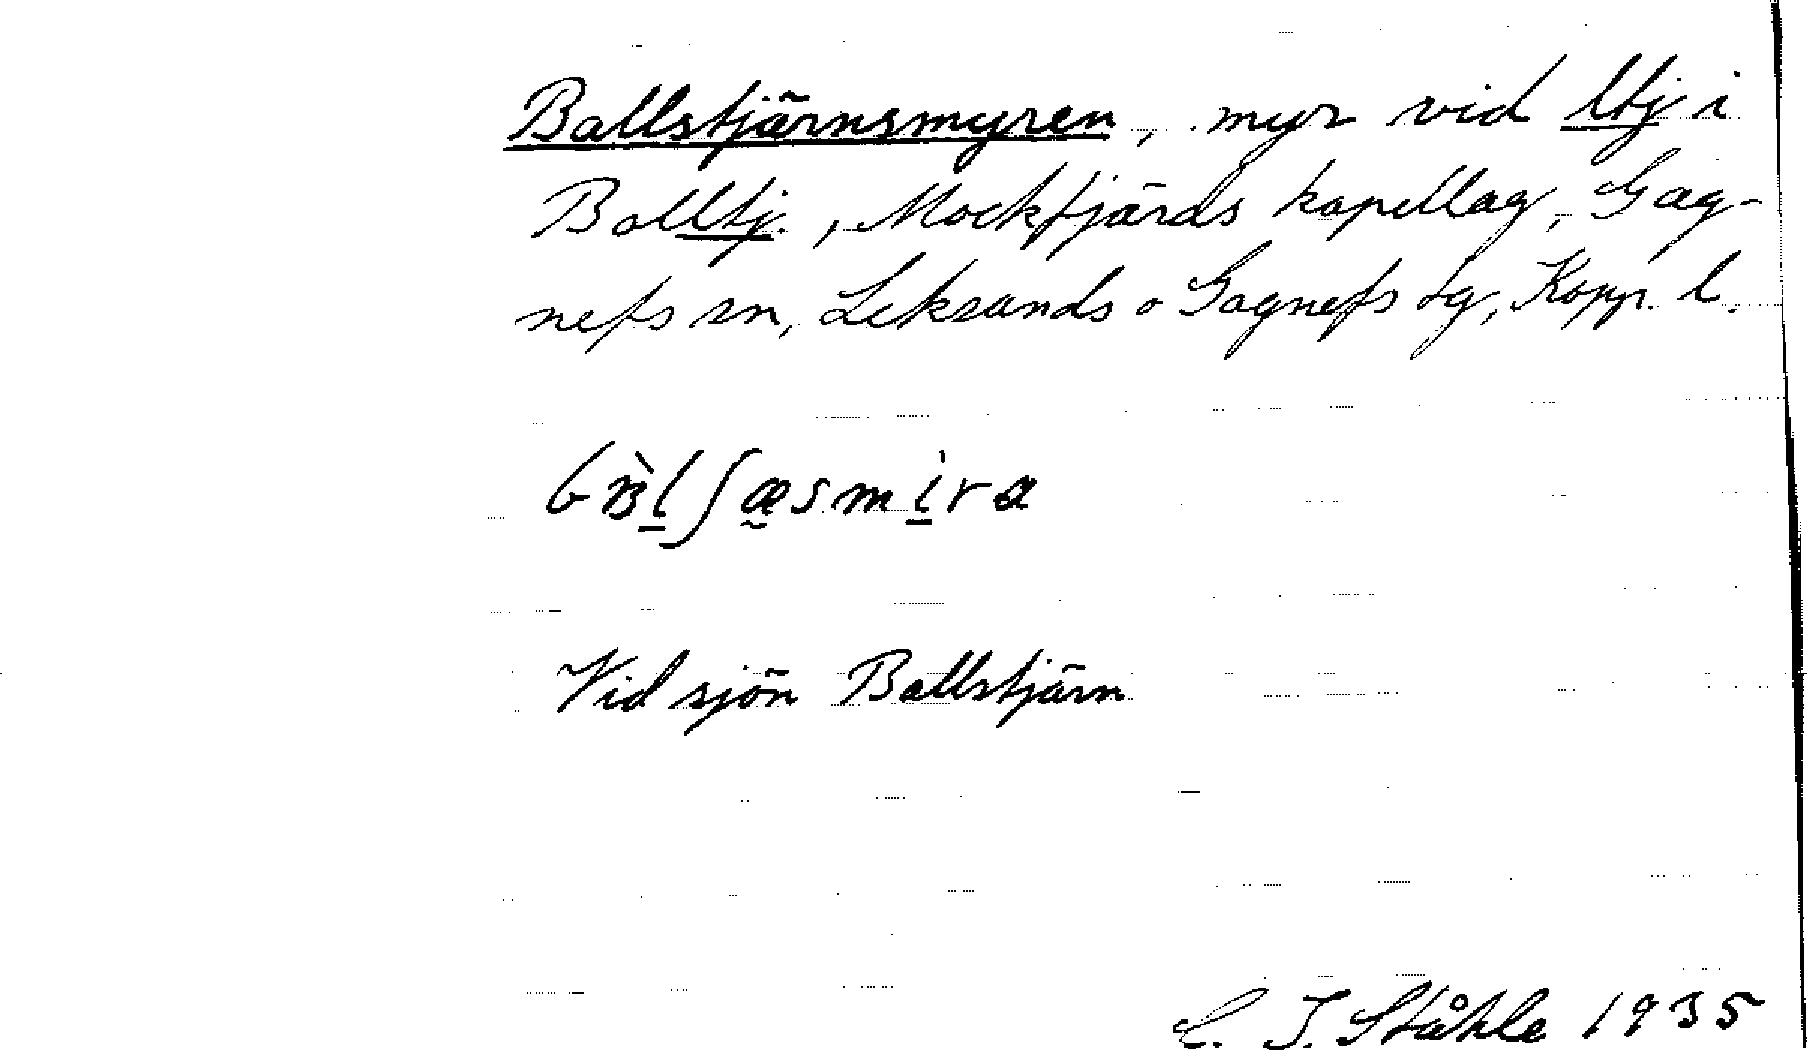 Ballstjärnsmyren, myr vid lltj i
Balltj., Mockfjärds kapellag, Gag-
nefs sn, Leksands o Gagnefs dg, Kopp. l.
Vid sjön Ballstjärn
C. I. Ståhle 1935